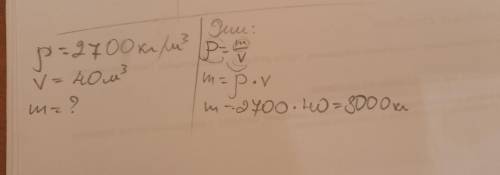 ρ=2700кг/м³
V=40м³
m=?
ρ=m/V
m=ρ·v
m=2700·40=8000кг